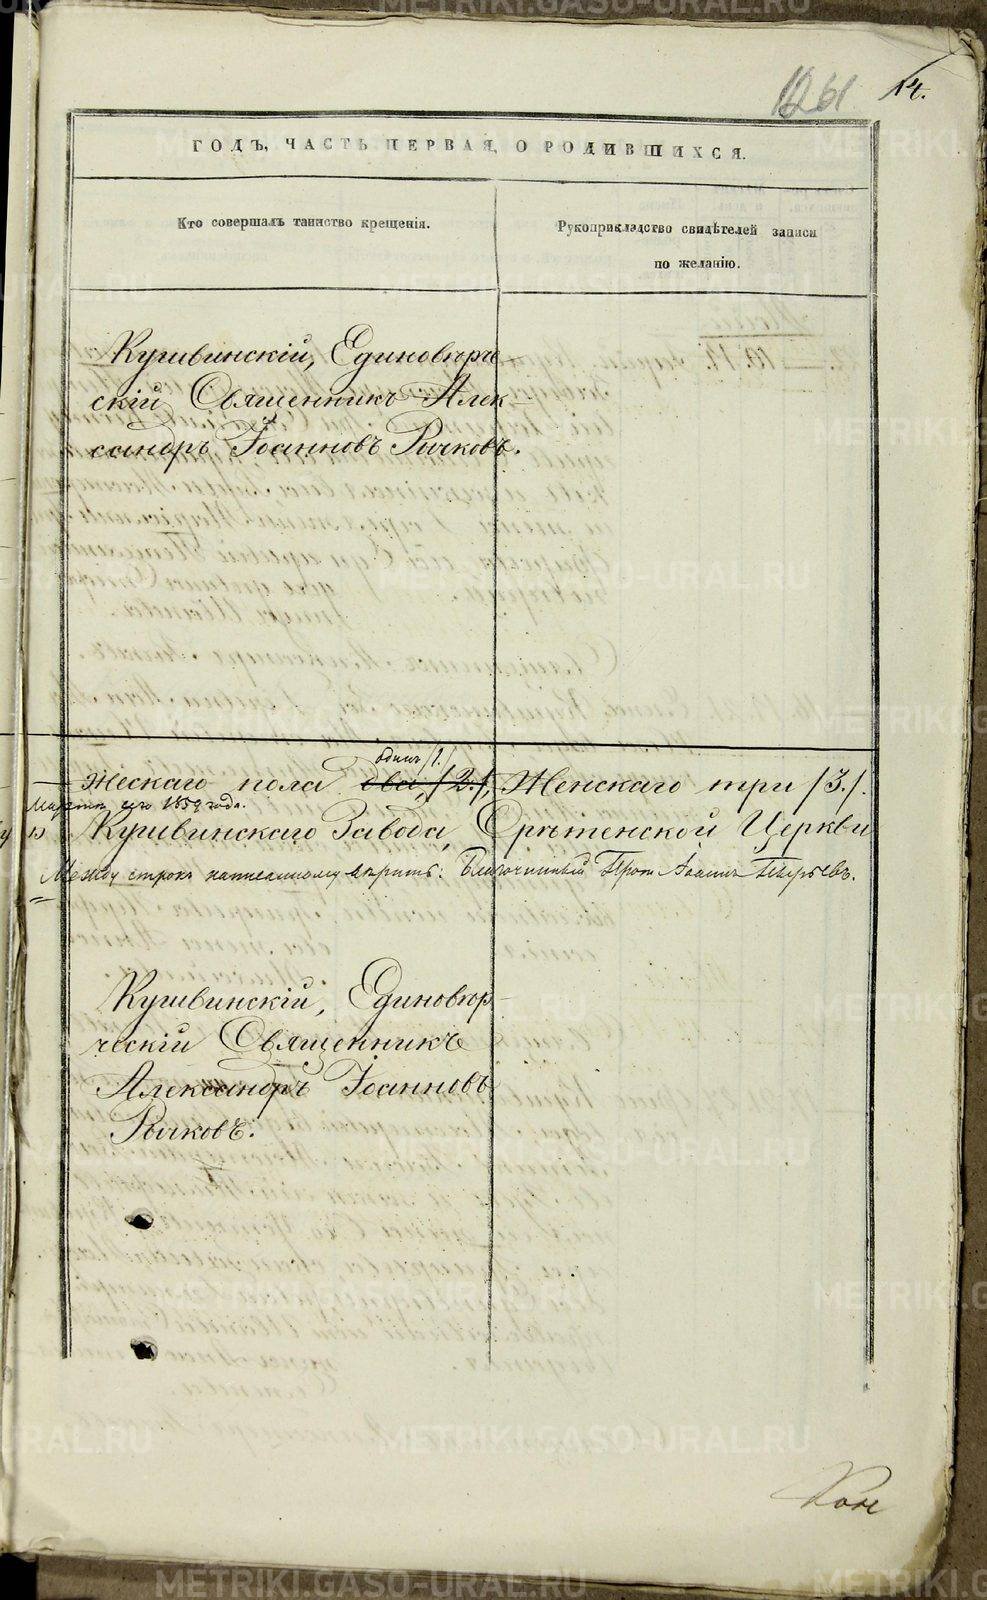 1261 14.
ГОДЪ, ЧАСТЬ ПЕРВАЯ, О РОДИВШИХСЯ.
Кто совершалъ таинство крещенія.
Рукоприкладство свидѣтелей записи
по желанію.
Кушвинскій, Единовѣрче-
скій Священникъ Алек-
сандръ Іоанновъ Рычковъ.
одинъ /1./
жескаго пола два, /2./, Женскаго три /3./.
Мѣсяцъ 1859 года.
Кушвинскаго Завода, Срѣтенской Церкви
Между строкъ написанному вѣрить: Благочинный Прот. Іоаннъ
Кушвинскій, Единовѣр-
ческій Священникъ
Александръ Іоанновъ
Рычковъ.
METRIKI.GASO-URAL.RU